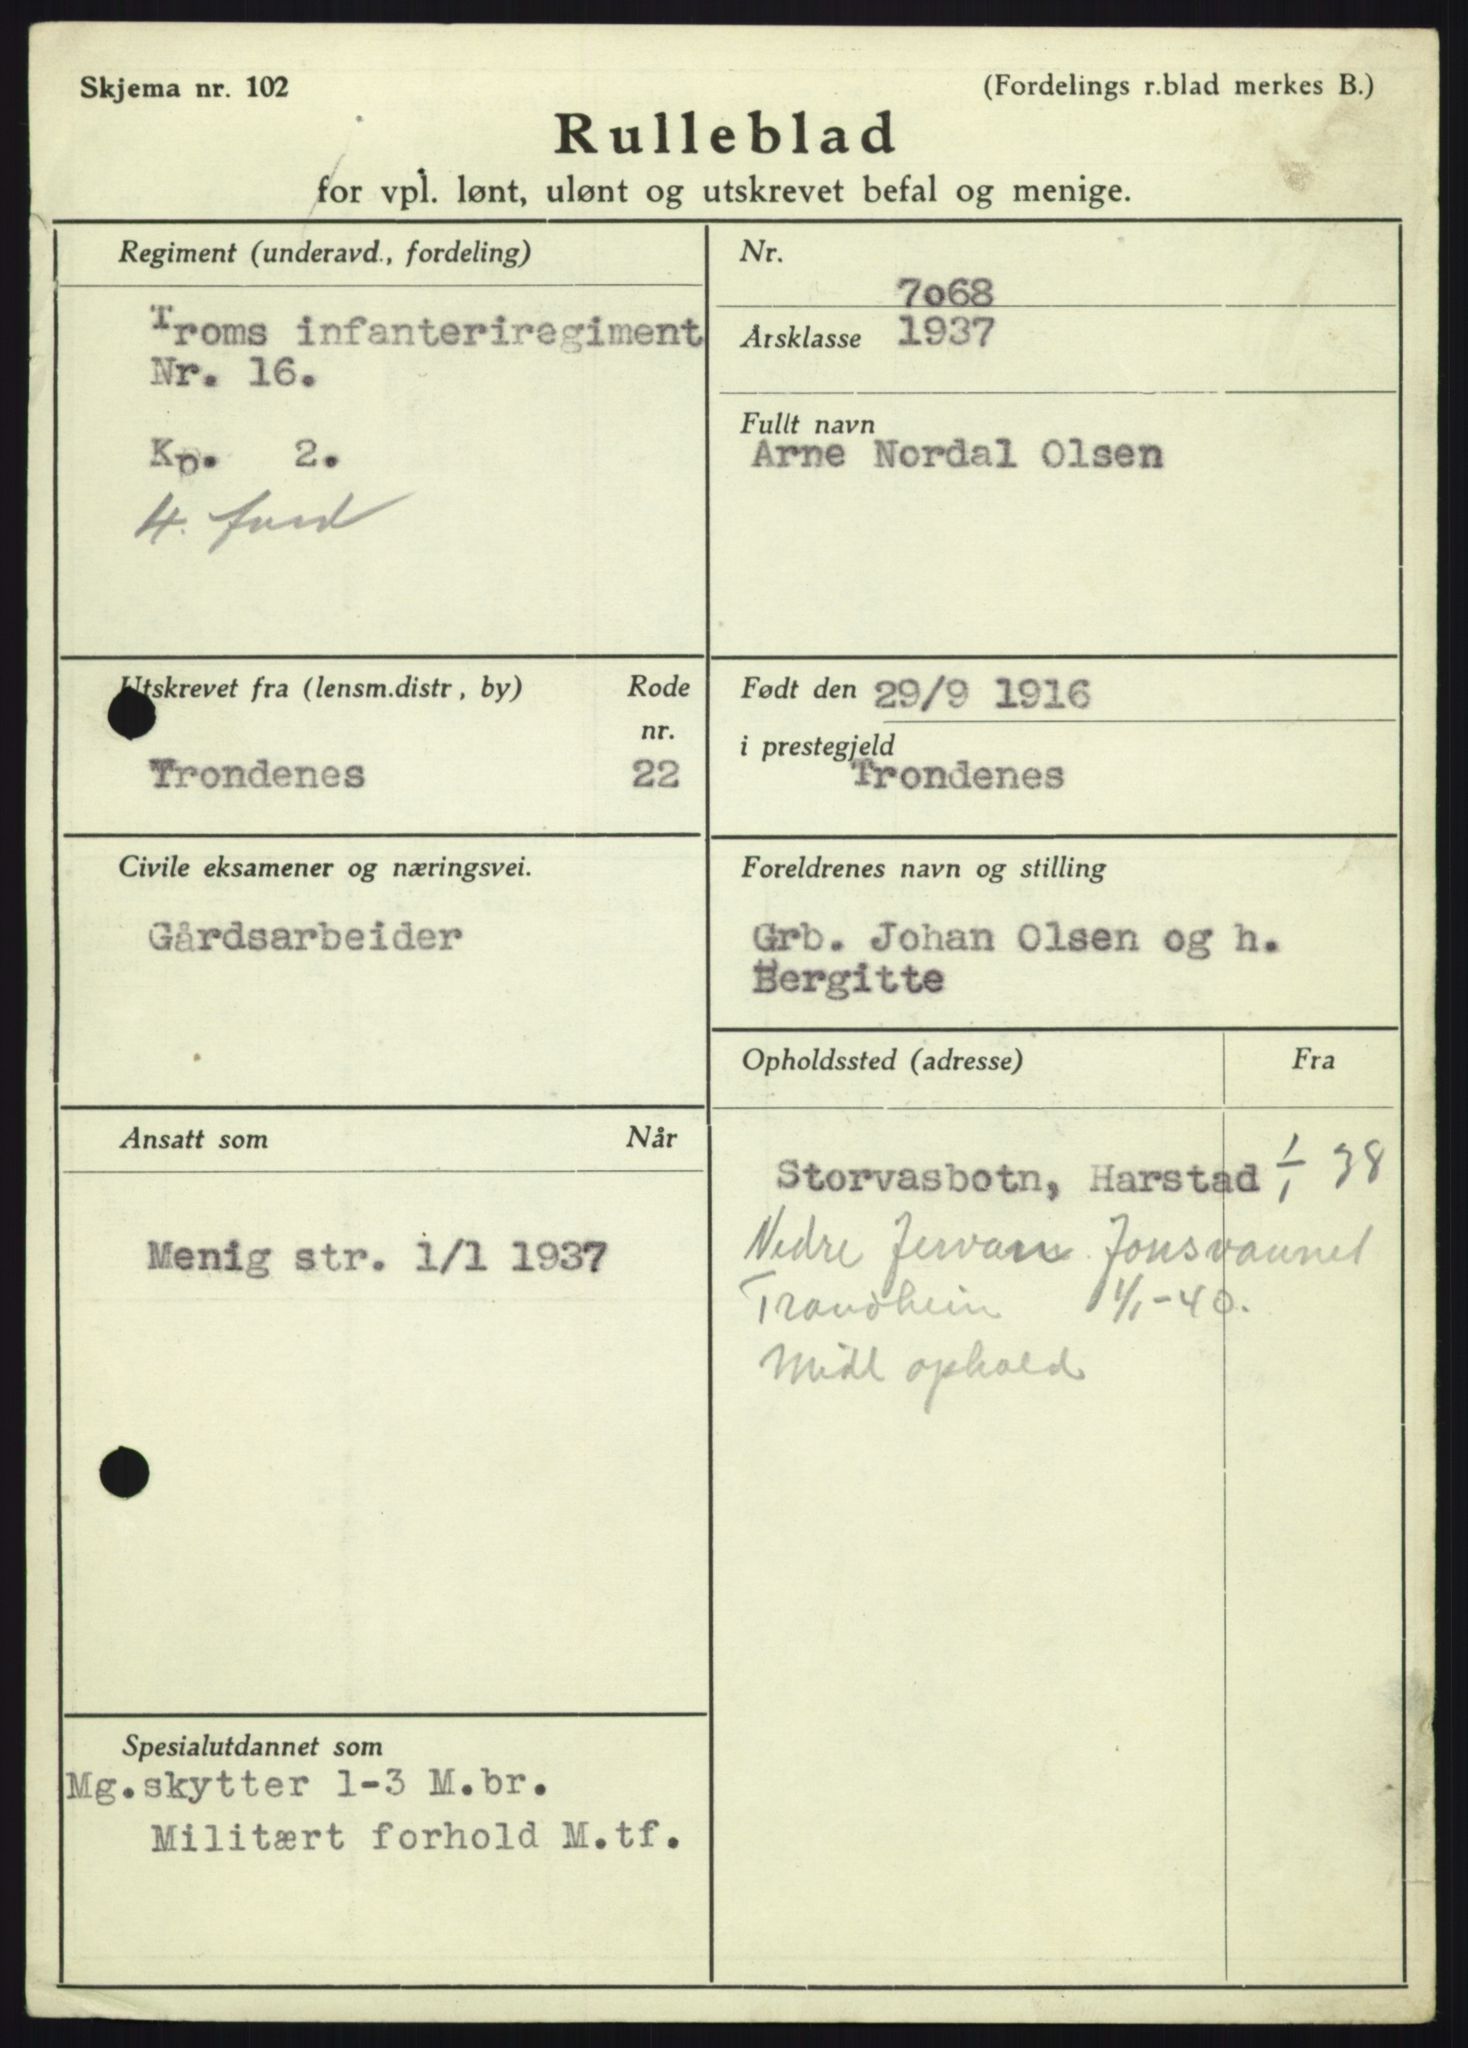 Skjema nr. 102
(Fordelings r.blad merkes B.)
Rulleblad
for vpl. lønt, ulønt og utskrevet befal og menige.
Regiment (underavd., fordeling)
Troms infanteriregiment
Nr. 16.
Kp. 2.
4. ford
Nr.
7o68
Årsklasse 1937
Fullt navn
Arne Nordal Olsen
Utskrevet fra (lensm.distr, by)
Rode
nr.
Trondenes 22
Født den 29/9 1916
i prestegjeld
Trondenes
Civile eksamener og næringsvei.
Gårdsarbeider
Foreldrenes navn og stilling
Grb. Johan Olsen og h.
Bergitte
Opholdssted (adresse) Fra
Storvasbotn, Harstad 1/1 38
Nedre Jervan Jonsvannet
Trondheim 1/1-40.
Midl ophold
Ansatt som Når
Menig str. 1/1 1937
Spesialutdannet som
Mg.skytter 1-3 M.br.
Militært forhold M.tf.